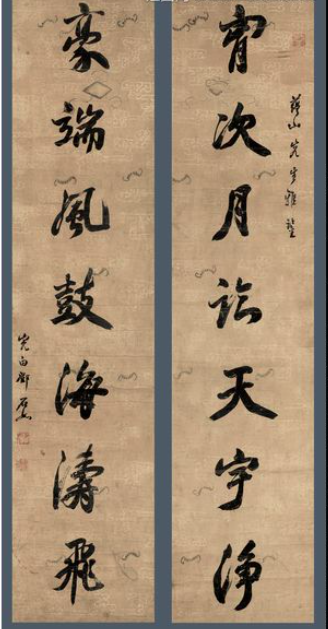 山先生雅鑒
胷次月臨天宇淨
豪端風鼓海濤飛
完白鄧石如